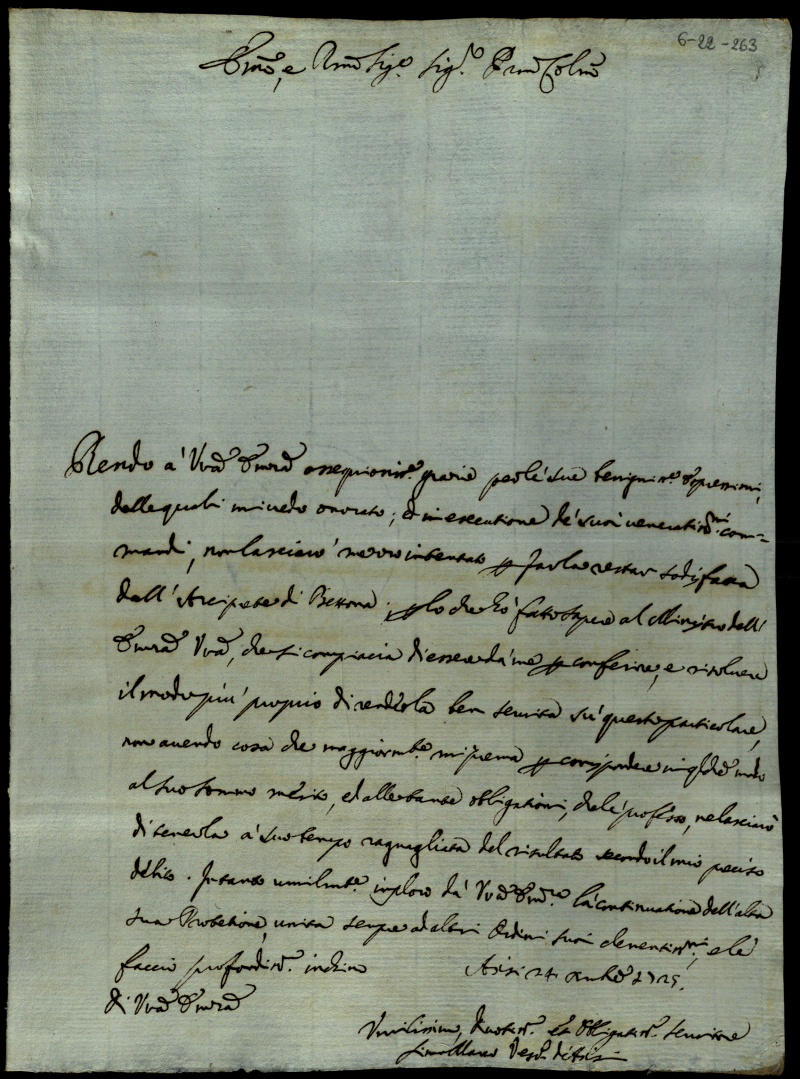 6-22-263
Em̃o, e Rm̃o Sig.e Sig.e P͠rone Col͠mo
Rendo à Vr̃a Em̃za ossequiosis.e grazie per le sue benignis.e espressioni,
dalle quali mi vedo onorato; ed in esecutione de' suoi veneratis.mi com-
mandi, non lascierò mezzo intentato p farla restar sodisfatta
dall'Arciprete di Bettona; p lo che hò fatto sapere al Ministro dell'
Em̃za Vr̃a, che si compiacia di essere dà me p conferire, e risolvere
il modo più proprio di renderla ben servita sù questo particolare,
non avendo cosa che maggiorm.e mi prema p corrispondere in qlche modo
al suo sommo merito, ed alle tante obligationi, che le professo, ne lascierò
di tenerla à suo tempo ragguagliata del risultato secondo il mio preciso
debito. Intanto umilm.e imploro dà Vr̃a Em̃za la continuatione dell'alta
sua Protetione, unita sempre ad altri Ordini suoi clementiss.mi, e le
faccio profondis.o inchino Asisi 24 1725.
di Vr̃a Em̃za
Umilissimo, Divotis.o Et Obligatis.o Servitore
Vesc.o d'Asisi